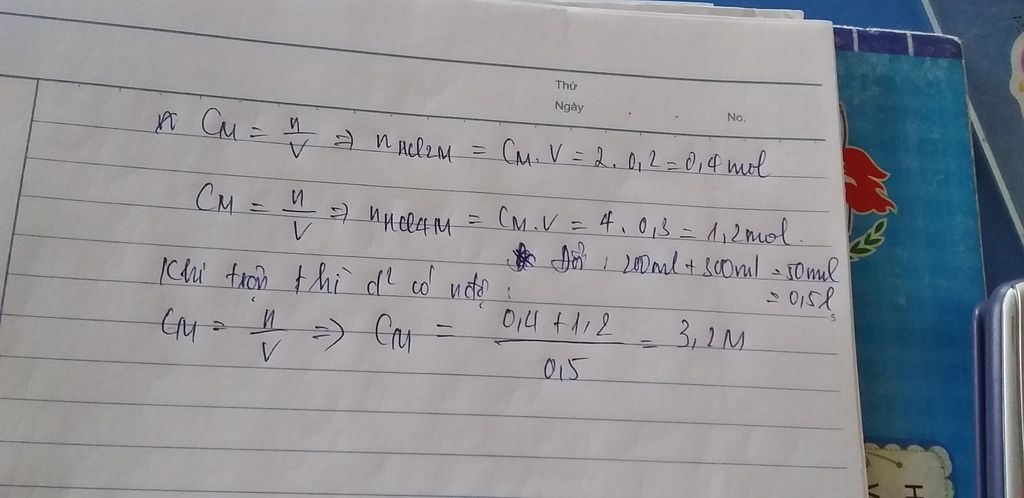 Thứ
Ngày
No.
CM = n/V => nHCl2M = CM. V = 2. 0,2 = 0,4 mol
CM = n/V => nHCl4M = CM.V = 4. 0,3 = 1,2 mol.
Đổi: 200ml + 300ml = 50ml
= 0,5l
Khi trộn thì d² có nđộ:
CM = n/V => CM = (0,4 + 1,2)/0,5 = 3,2M